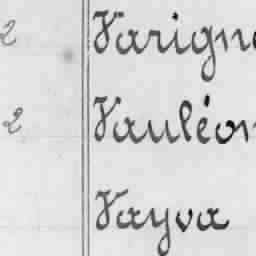 2 Varigno
2 Vauléon
Vayva